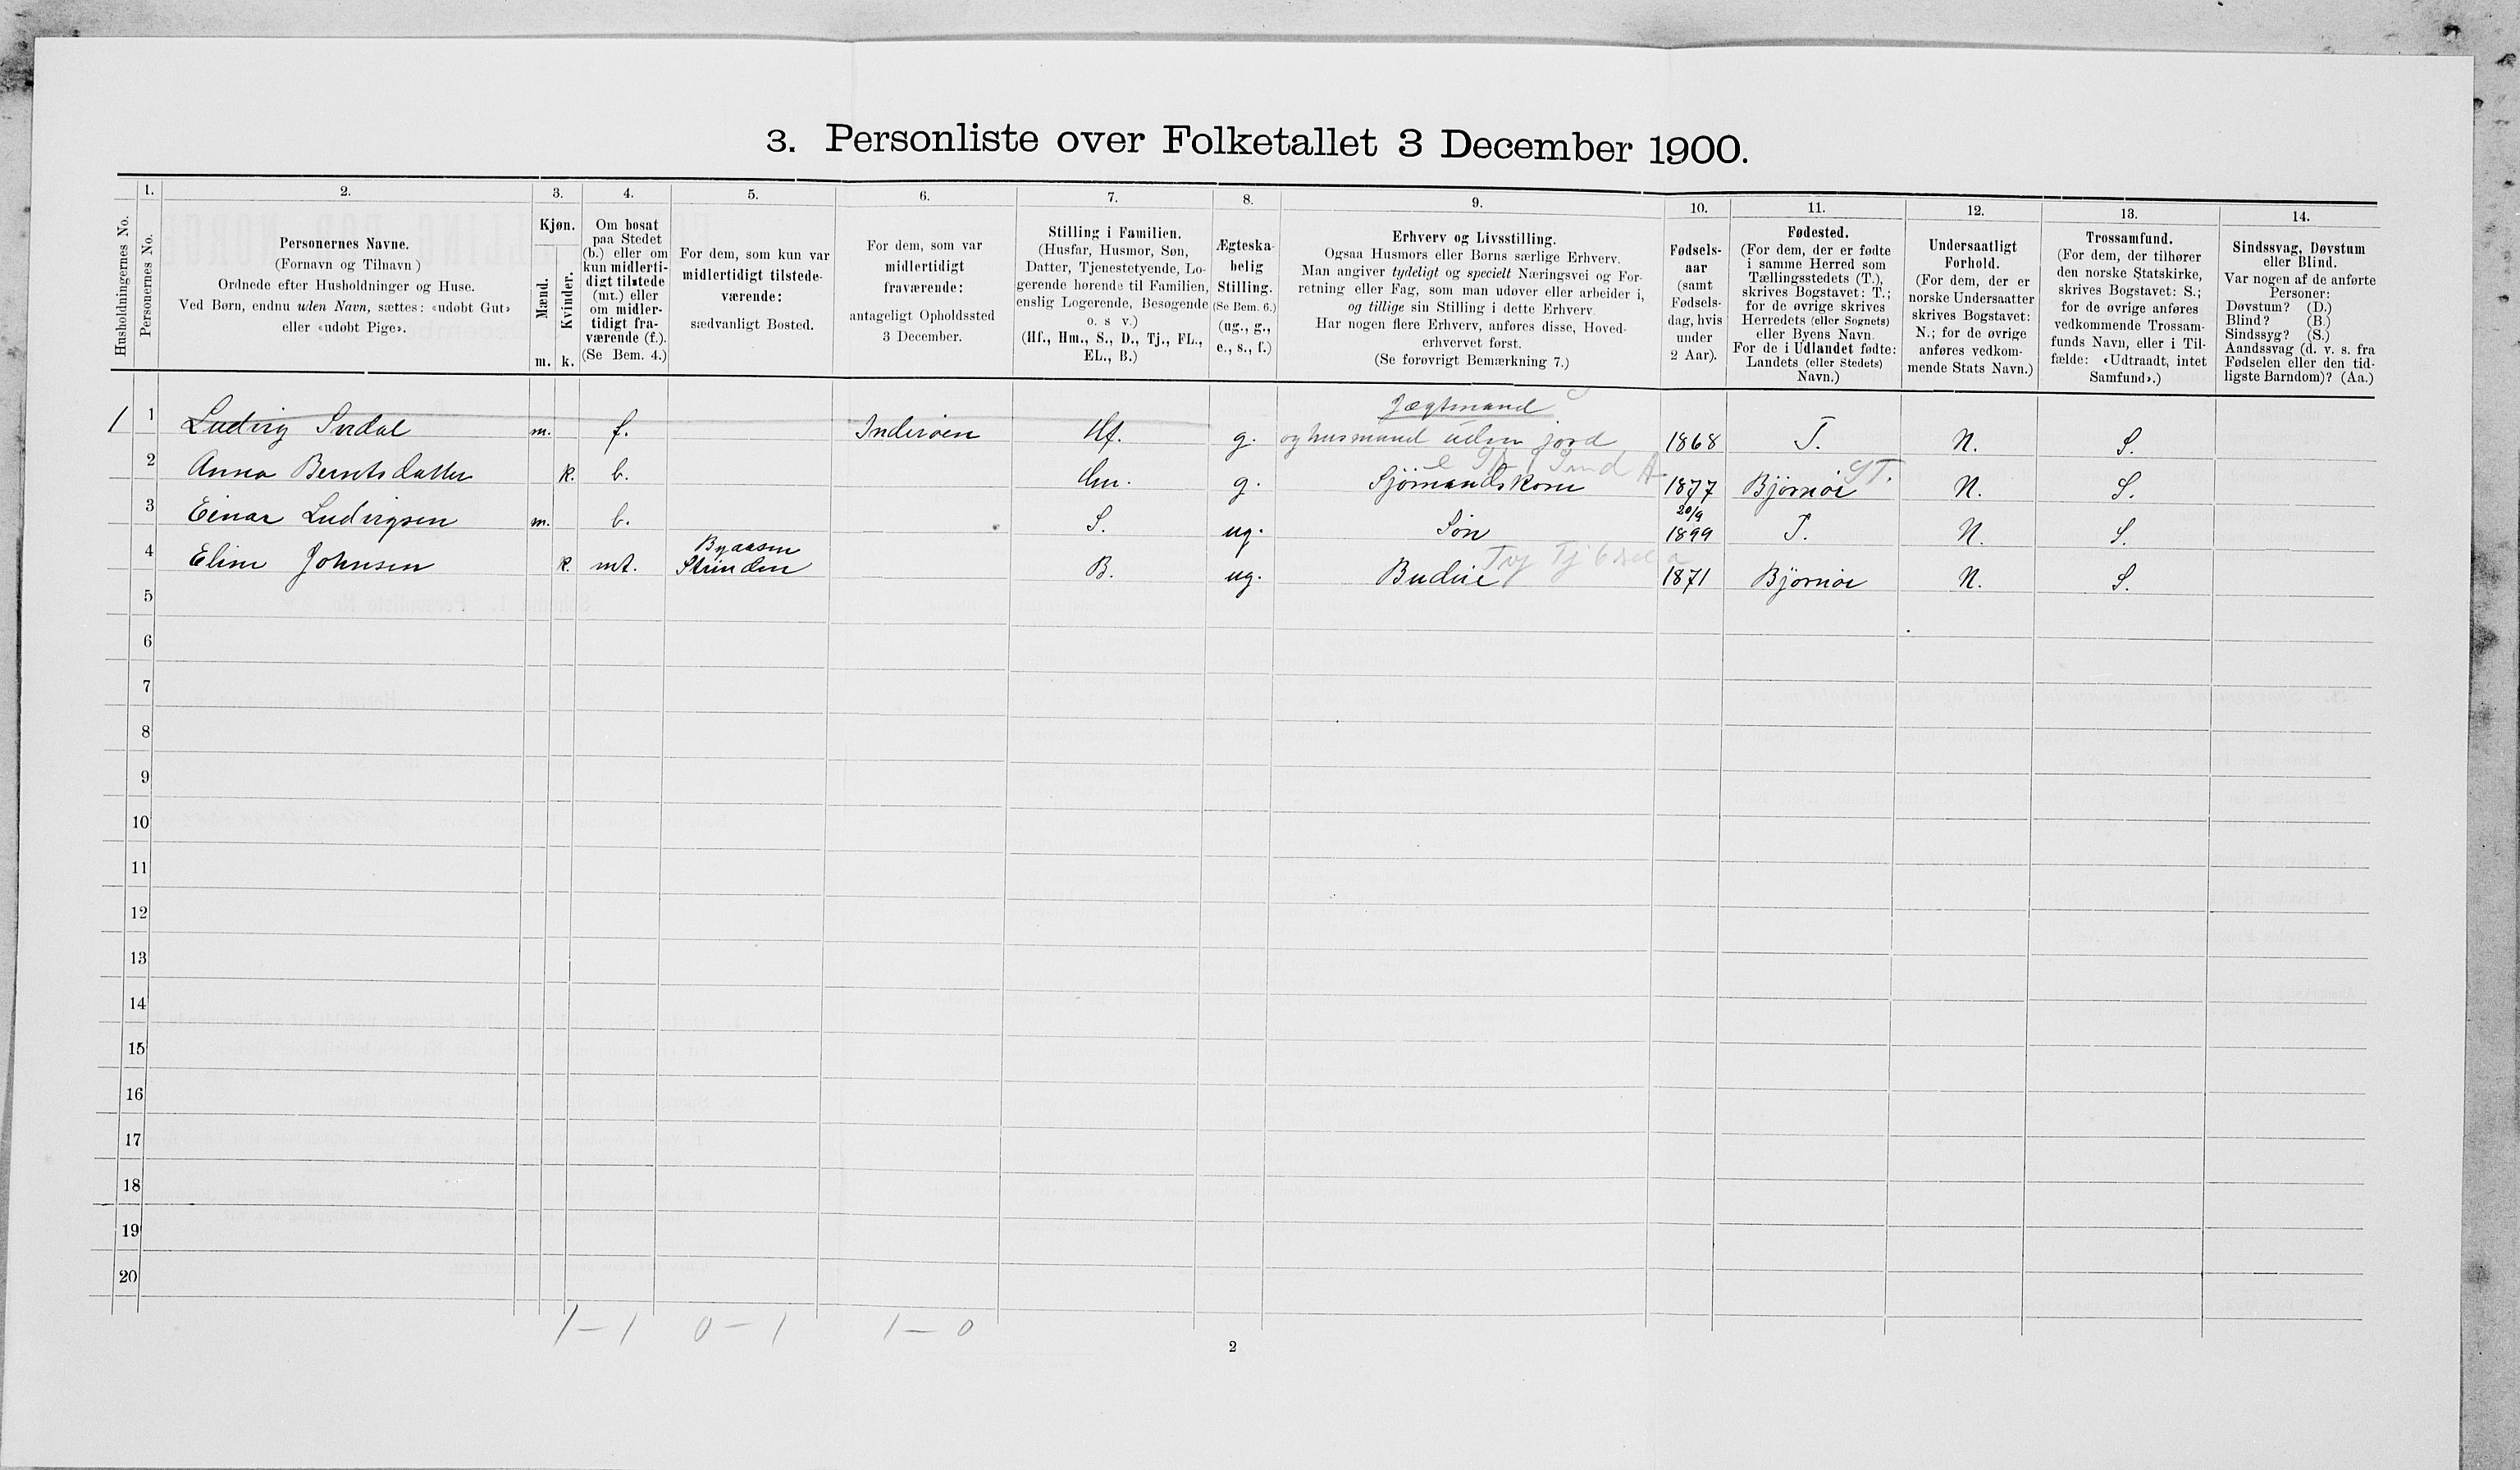 3. Personliste over Folketallet 3 December 1900.
Husholdningernes No.
1.
Personernes No.
2.
Personernes Navne.
(Fornavn og Tilnavn)
Ordnede efter Husholdninger og Huse.
Ved Børn, endnu uden Navn, sættes: «udøbt Gut»
eller «udøbt Pige».
3.
Kjøn.
Mænd.
Kvinder.
m. k.
4.
Om bosat
paa Stedet
(b.) eller om
kun midlerti-
digt tilstede
(mt.) eller
om midler-
tidigt fra-
værende (f.).
(Se Bem. 4.)
5.
For dem, som kun var
midlertidigt tilstede-
værende:
sædvanligt Bosted.
6.
For dem, som var
midlertidigt
fraværende:
antageligt Opholdssted
3 December.
7.
Stilling i Familien.
(Husfar, Husmor, Søn,
Datter, Tjenestetyende, Lo-
gerende hørende til Familien,
enslig Logerende, Besøgende
o. s v.)
(Hf., Hm., S., D., Tj., FL.,
EL., B.)
8.
Ægteska-
belig
Stilling.
(Se Bem. 6.)
(ug., g.,
e., s., f.)
9.
Erhverv og Livsstilling.
Ogsaa Husmors eller Børns særlige Erhverv.
Man angiver tydeligt og specielt Næringsvei og For-
retning eller Fag, som man udøver eller arbeider i,
og tillige sin Stilling i dette Erhverv.
Har nogen flere Erhverv, anføres disse, Hoved-
erhvervet først.
(Se forøvrigt Bemærkning 7.)
10.
Fødsels-
aar
(samt
Fødsels-
dag, hvis
under
2 Aar).
11.
Fødested.
(For dem, der er fødte
i samme Herred som
Tællingsstedets (T.),
skrives Bogstavet: T.;
for de øvrige skrives
Herredets (eller Sognets)
eller Byens Navn.
For de i Udlandet fødte:
Landets (eller Stedets)
Navn.)
12.
Undersaatligt
Forhold.
(For dem, der er
norske Undersaatter
skrives Bogstavet:
N.; for de øvrige
anføres vedkom-
mende Stats Navn.)
13.
Trossamfund.
(For dem, der tilhører
den norske Statskirke,
skrives Bogstavet: S.;
for de øvrige anføres
vedkommende Trossam-
funds Navn, eller i Til-
fælde: «Udtraadt, intet
Samfund».)
14.
Sindssvag, Døvstum
eller Blind.
Var nogen af de anførte
Personer:
Døvstum? (D.)
Blind? (B.)
Sindssyg? (S.)
Aandssvag (d. v. s. fra
Fødselen eller den tid-
ligste Barndom)? (Aa.)
Jægtmand
1 1 Ludvig Indal m. f. Inderøen Hf. g. og husmand uden jord 1868 T. N. S.
2 Anna Berntsdatter k. b. Hm. g. Sjømandskone 1877 Bjørnør ST. N. S.
20/9
3 Einar Ludvigsen m. b. S. ug. Søn 1899 T. N. S.
Byaasen
4 Eline Johnsen k. mt. Strinden B. ug. Budeie 1871 Bjørnør N. S.
5
6
7
8
9
10
11
12
13
14
15
16
17
18
19
20
1 – 1 0 – 1 1 – 0
2